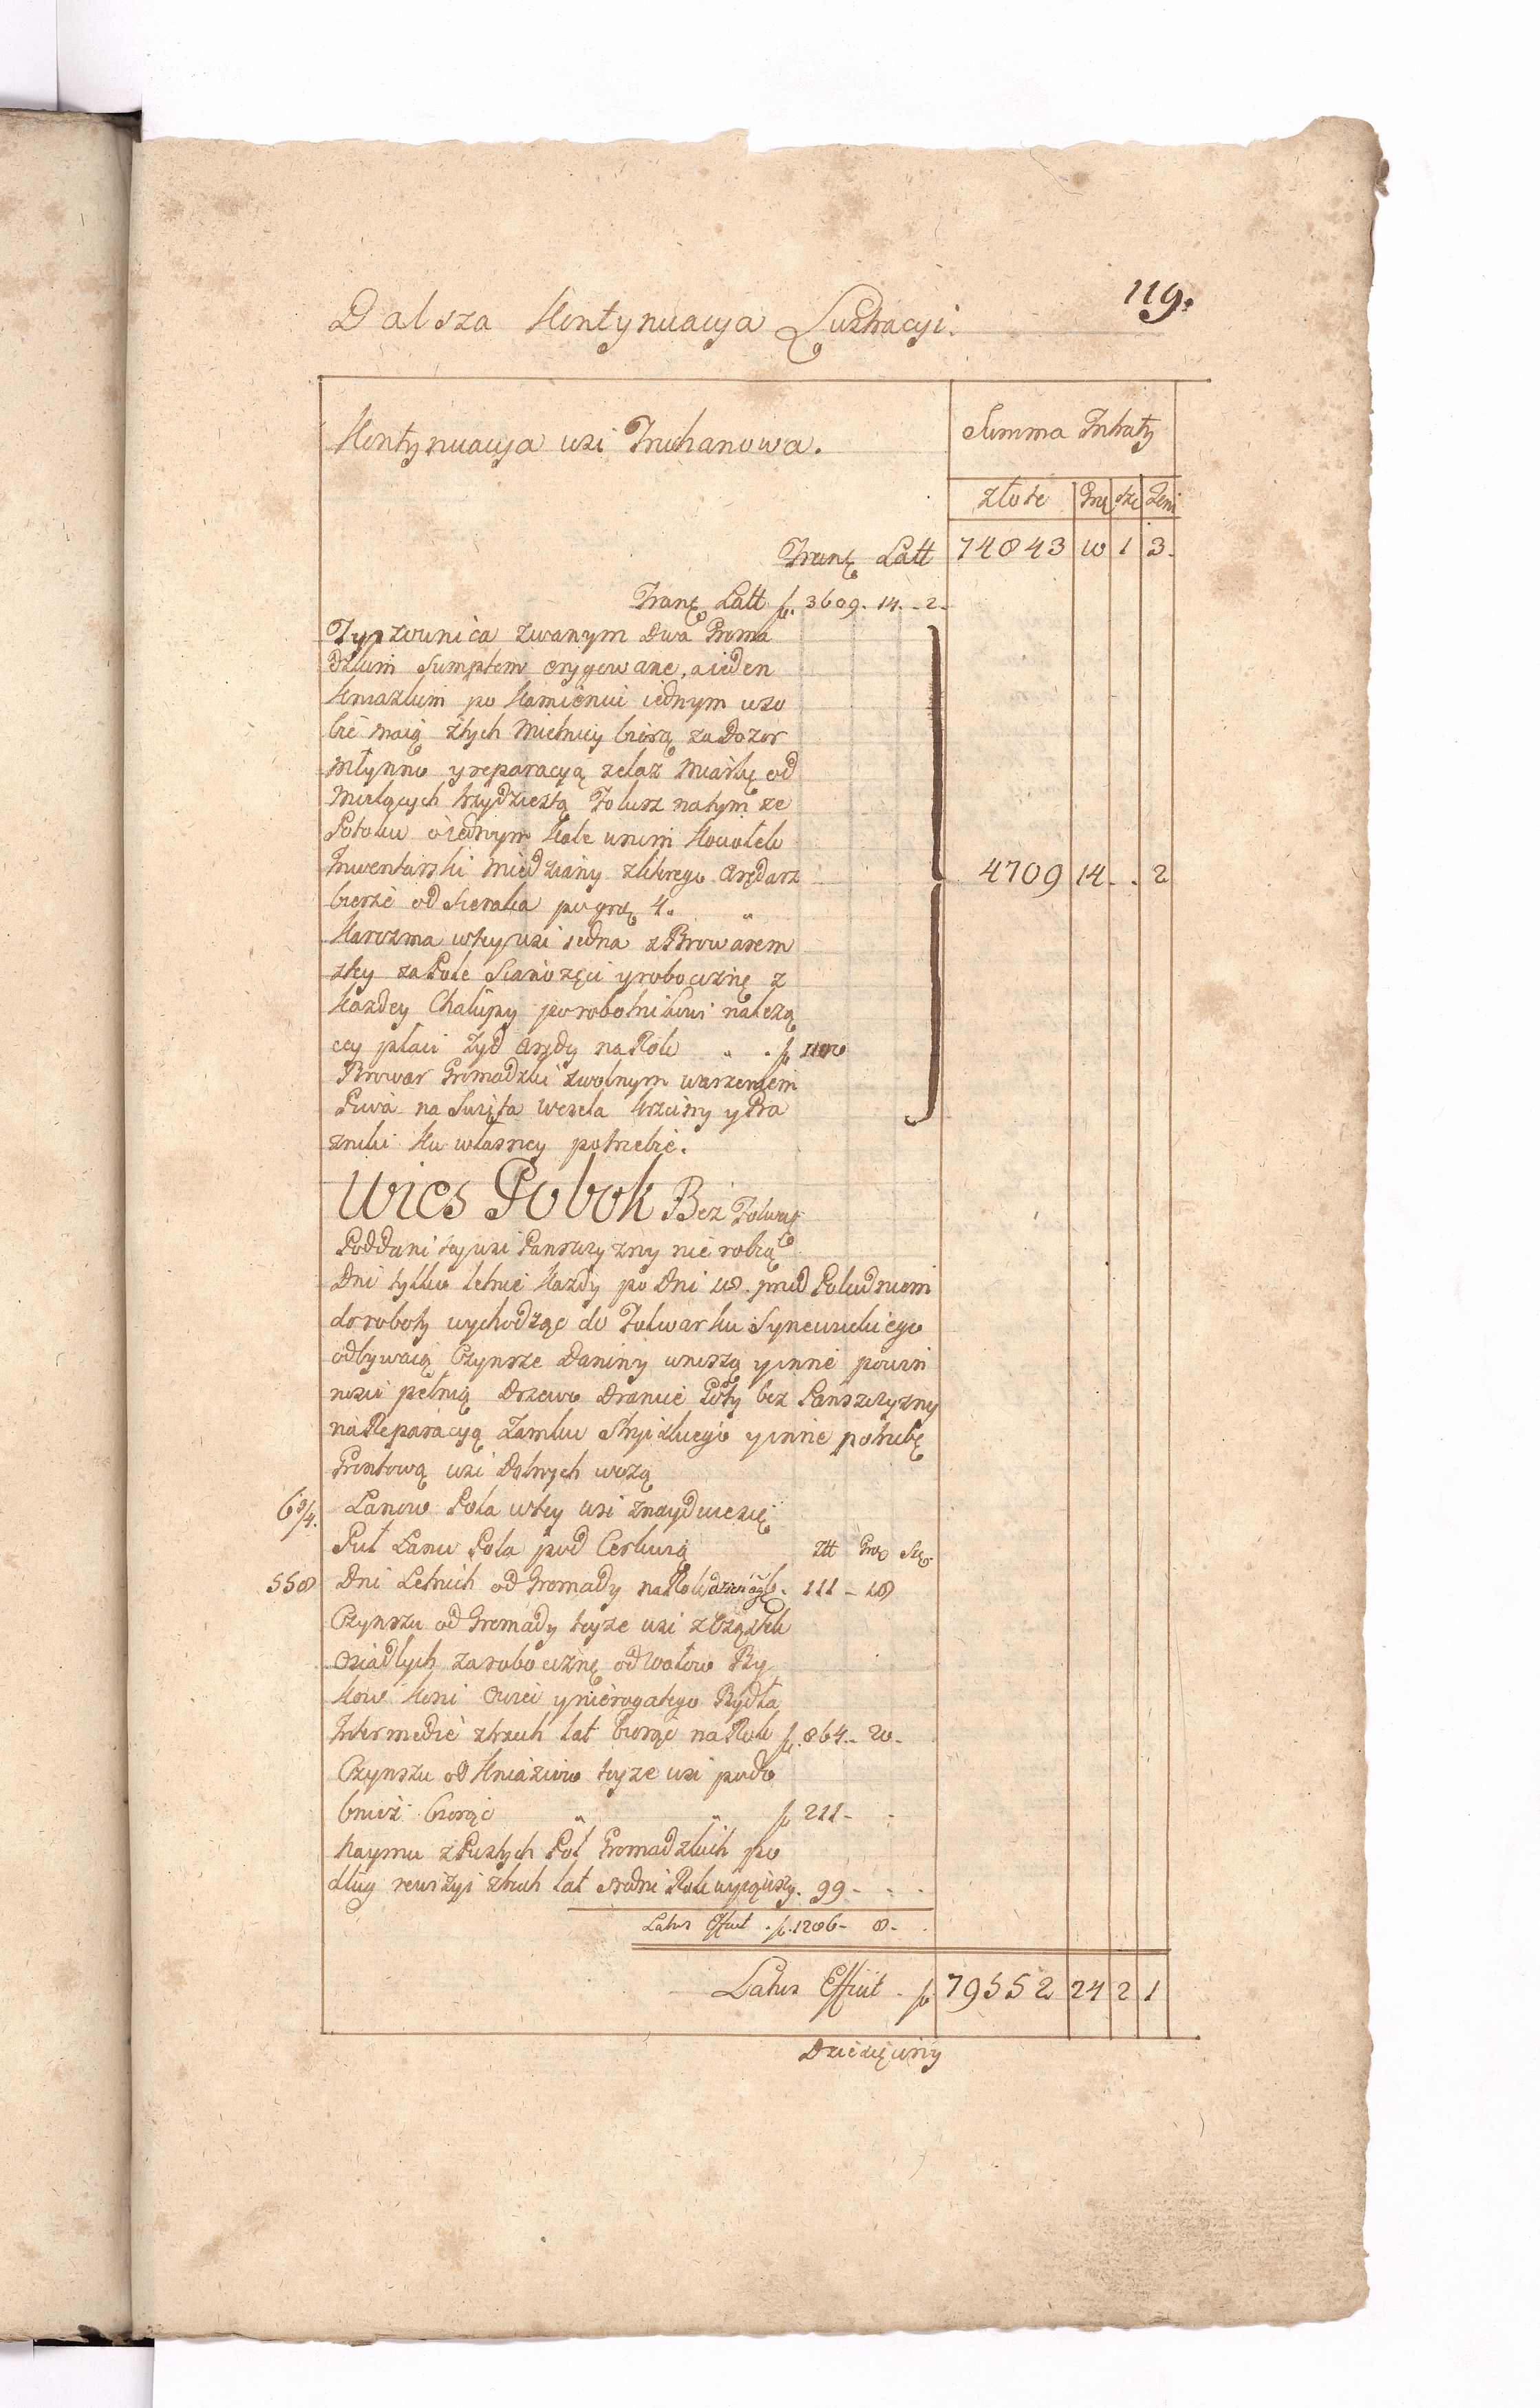 119.
Dalsza Kontynuacya Lustracyi.
Kontynuacya wsi Truchanowa.
Summa Intraty
złote Grę Szę Deni
Tranę Latt 74843 10 1 3.
Tranę Latt fl. 3609. 14. - 2.
Tyszownica zwanym dwa Groma
dzkim Sumptem erygowane, a ieden
Kniazkim po Kamieniu iednym w so
bie maią z tych Mielnicy biorą za Dozor
młynow y reparacyą zelaz Miarkę od
Mielących trzydziestą Folusz na tym ze
Potoku o iednym Kole w nim Kociołek
Inwentarski Miedziany z ktorego Arędarz
bierze od Sieraka po grę 4. "
4709 14 . . 2
Karczma w tey wsi iedna z Browarem
z tey za Pole Sianozęci y robociznę z
kazdey Chałupy po robotnikowi należą
cey płaci Zyd Arędy na Rok " . fl 1100
Browar Gromadzki z wolnym warzeniem
Piwa na Swięta Wesela Krzciny y Pra
zniki ku własney potrzebie.
Wies Pobok Bez Folwar:
Poddani tey wsi Panszczyzny nie robią
Dni tylko letnie kazdy po Dni 18. przed Południem
do roboty wychodząc do Folwarku Synewuckiego
odbywaią Czynsze Daniny wnoszą y inne powin
nosci pełnią Drzewo Dranice Gąty bez Panszczyzny
na Reparacyą Zamku Stryiskiego y inne potrzebę
Gontową wsi Dolnych wożą
6 3/4. Łanow Pola w tey wsi znayduie się
Puł Łanu Pola pod Cerkwią Złt Grę Szę.
558 Dni Letnich od Gromady na Rok 111 - 18
Czynszu od Gromady teyze wsi z Cząstek
osiadłych za robociznę od Wołow By
kow Koni Owiec y nierogatego Bydła
Intermedie z trzech lat biorąc na Rok fl. 864.- 20 -
Czynszu od Kniaziow teyze wsi podo
bniez biorąc " " fl 211 - -
Naymu z Pustych Pol Gromadzkich po
dług rewizyi z trzech lat sredni Rok wyiąwszy. 99 - - -
Latus Efficit . fl. 1286 - 8 - .
Latus Efficit . fl 79552 24 2 1
Dziesięciny